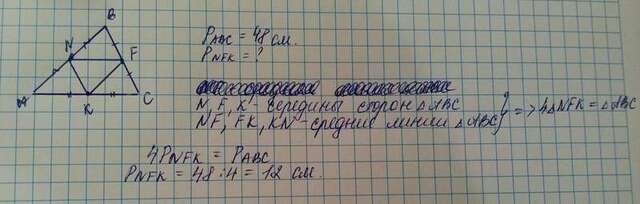 B
N
F
A
K
C
P_ABC = 48 см.
P_NFK = ?
N, F, K - середины сторон △ABC
NF, FK, KN - средние линии △ABC } => 4△NFK = △ABC
4P_NFK = P_ABC
P_NFK = 48 : 4 = 12 см.